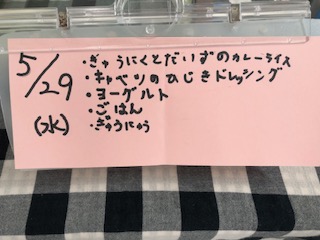 5/29
(水)
・ぎゅうにくとだいずのカレーライス
・キャベツのひじきドレッシング
・ヨーグルト
・ごはん
・ぎゅうにゅう